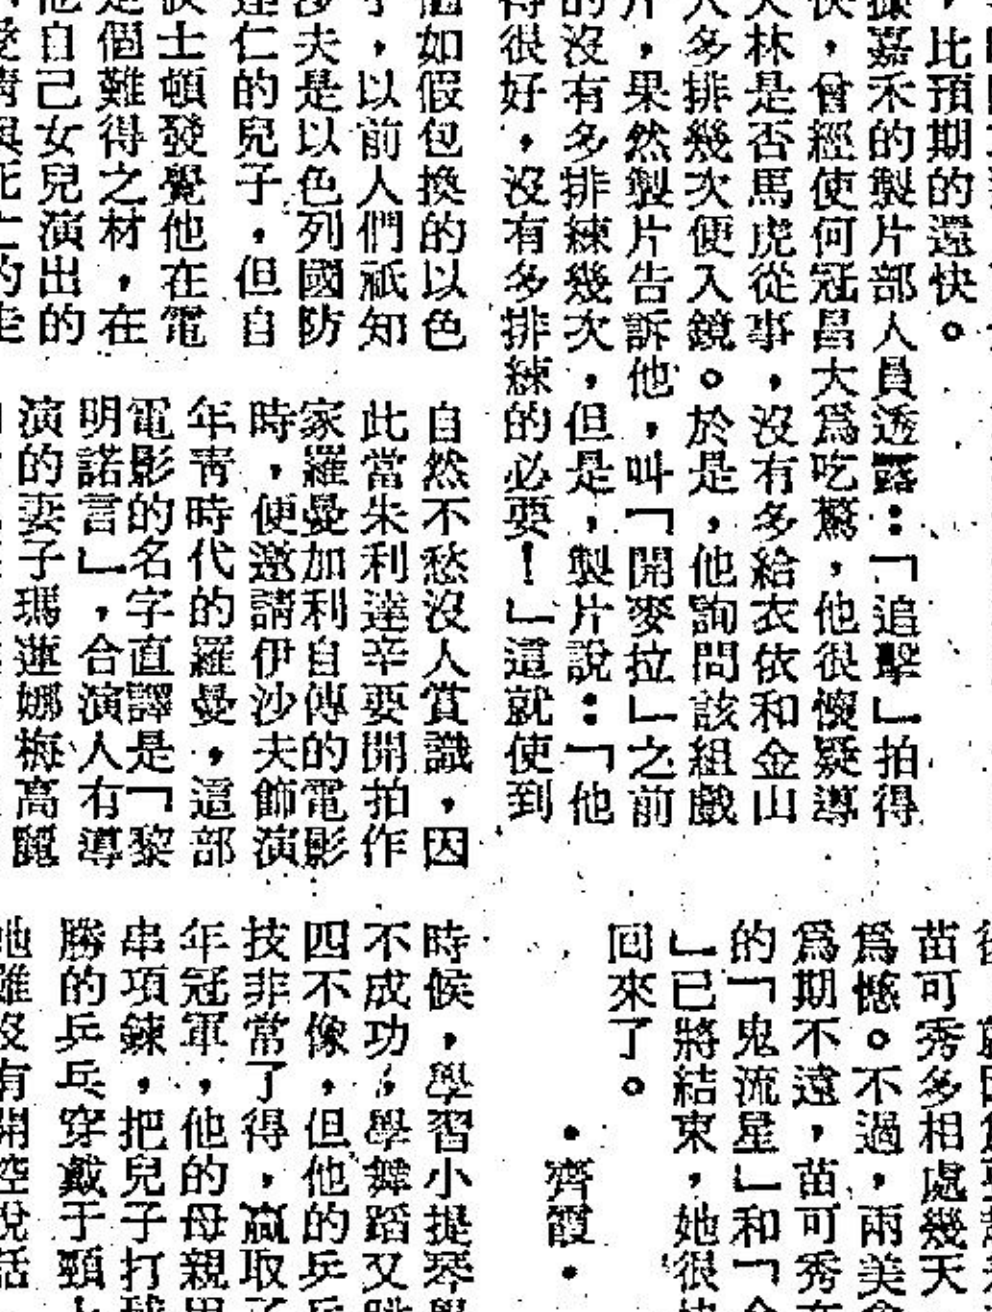 ，比預期的還快。
據嘉禾的製片部人員透露：「追擊」拍得
快，曾經使何冠昌大爲吃驚，他很懷疑導
大林是否馬虎從事，沒有多給衣依和金山
人多排幾次便入鏡。於是，他詢問該組戲
片，果然製片告訴他，叫「開麥拉」之前
的沒有多排練幾次，但是，製片說：「他
得很好，沒有多排練的必要！」這就使到
個如假包換的以色
，以前人們祇知
沙夫是以色列國防
達仁的兒子，但自
士頓發覺他在電
是個難得之材，在
他自己女兒演出的
自然不愁沒人賞識，因
此當朱利達辛要開拍作
家羅曼加利自傳的電影
時，便邀請伊沙夫飾演
年靑時代的羅曼，這部
電影的名字直譯是「黎
明諾言」，合演人有導
演的妻子瑪蓮娜梅高麗
苗可秀多相處幾天
爲憾。不過，兩美
爲期不遠，苗可秀
的「鬼流星」和「
」已將結束，她很
回來了。
・齊霞・
時候，學習小提琴
不成功，學舞蹈又
四不像，但他的乒
技非常了得，贏取
年冠軍，他的母親
串項鍊，把兒子打
勝的乒乓穿戴于頸
她雖沒有開腔說話